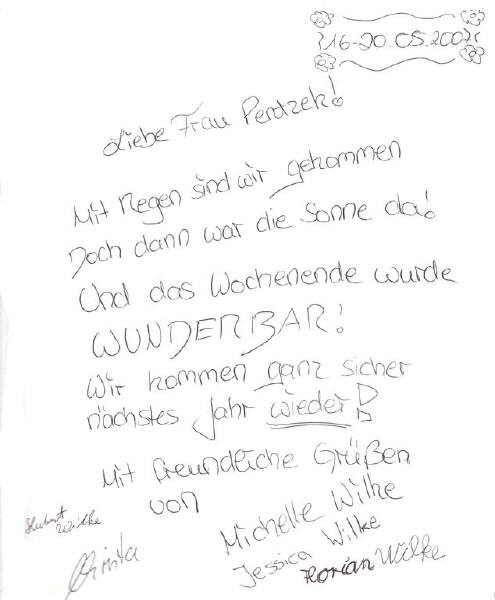 16-20.05.2007
Liebe Frau Perdzek!
Mit Regen sind wir gekommen
Doch dann war die Sonne da!
Und das Wochenende wurde
WUNDERBAR!
Wir kommen ganz sicher
nächstes Jahr wieder!
Mit freundliche Grüßen
von
Michelle Wilke
Jessica Wilke
Florian Wilke
Hubert
Wilke
Christa